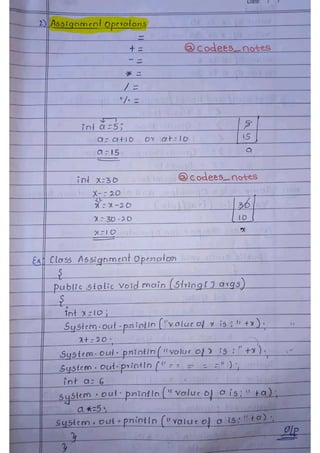 Date / /
2) Assignment Operators
=
+=
@codees_notes
-=
*=
/=
%=
int a=5;
a=a+10 or a+=10
a=15
5
15
a
int x=30
@codees_notes
x-=20
x=x-20
x=30-20
x=10
30
10
x
Ex: Class Assignment Operator
{
public static void main (String[] args)
{
int x=10;
System.out.println("value of x is:"+x);
x+=20;
System.out.println("value of x is:"+x);
System.out.println("== = = =");
int a=6
System.out.println("value of a is:"+a);
a*=5;
System.out.println("value of a is:"+a);
}
}
O/P